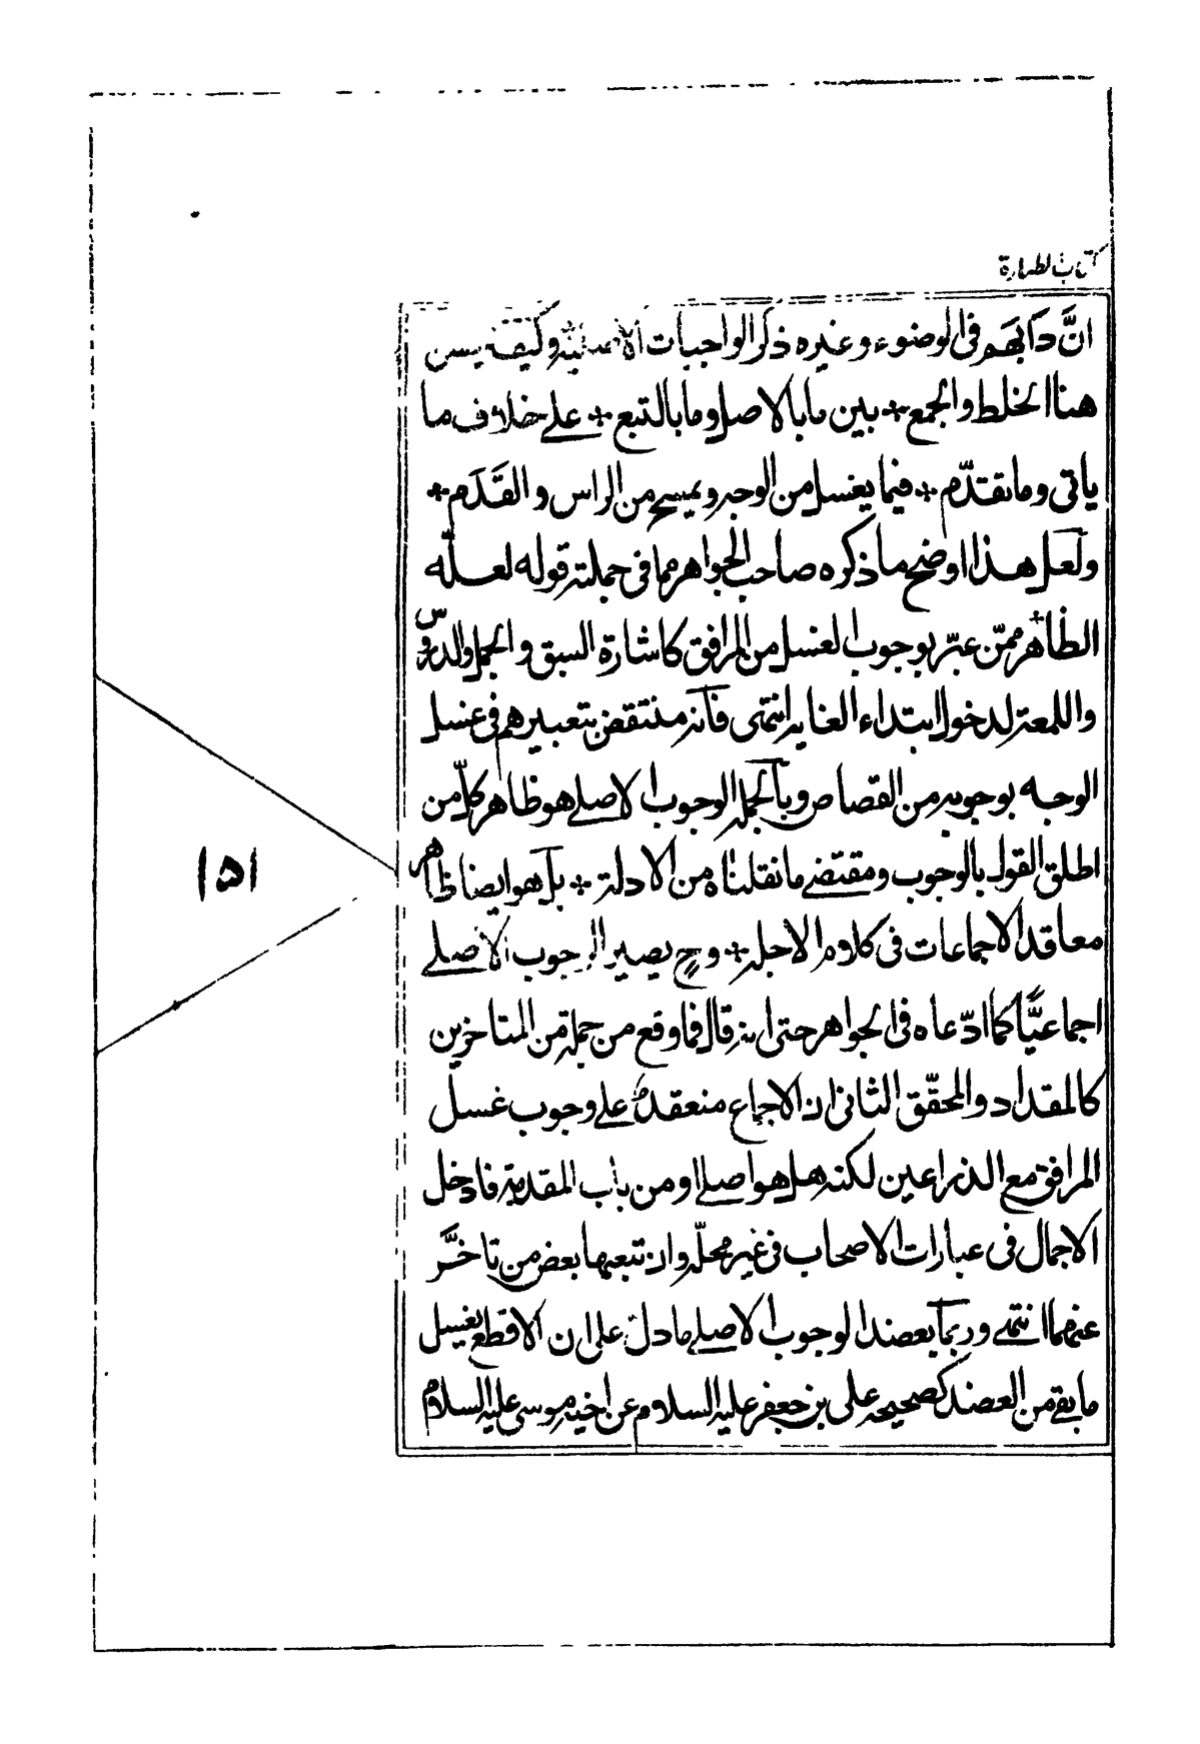 كتاب الطهارة
انَّ دَابَهَم فى الوضوء وغيره ذكر الواجبات الاصلية وكيف يسن
هنا الخلط والجمع + بين ما بالاصل وما بالتبع + على خلاف ما
ياتى وما تقدّم + فيما يغسل من الوجه ويمسح من الراس والقَدَم +
ولعل هذا اوضح ما ذكره صاحب الجواهر مما فى جملته قوله لعلّه
الظاهر ممّن عبّر بوجوب الغسل من المرافق كاشارة السبق والجمل والدروس
واللمعة لدخول ابتداء الغاية انتهى فانه منتقض بتعبيرهم فى غسل
الوجه بوجوبه من القصاص وبالجملة الوجوب الاصلے هو ظاهر كلّ من
اطلق القول بالوجوب ومقتضے ما نقلناه من الادلة + بل هو ايضا ظاهر
معاقد الاجماعات فى كلام الاجلة + وح يصير الوجوب الاصلے
اجماعيًّا كما ادّعاه فى الجواهر حتى انه قال فما وقع من جملة من المتاخرين
كالمقداد والمحقّق الثانى ان الاجماع منعقد علے وجوب غسل
المرافق مع الذراعين لكنه هل هو اصلے او من باب المقدمة فادخل
الاجمال فى عبارات الاصحاب فى غير محلّه وان تبعهما بعض من تاخَّر
عنهما انتهے وربما يعضد الوجوب الاصلے ما دل علے ان الاقطع يغسل
ما بقے من العضد كصحيحة على بن جعفر عليه السلام عن اخيه موسى عليه السلام
١٥١